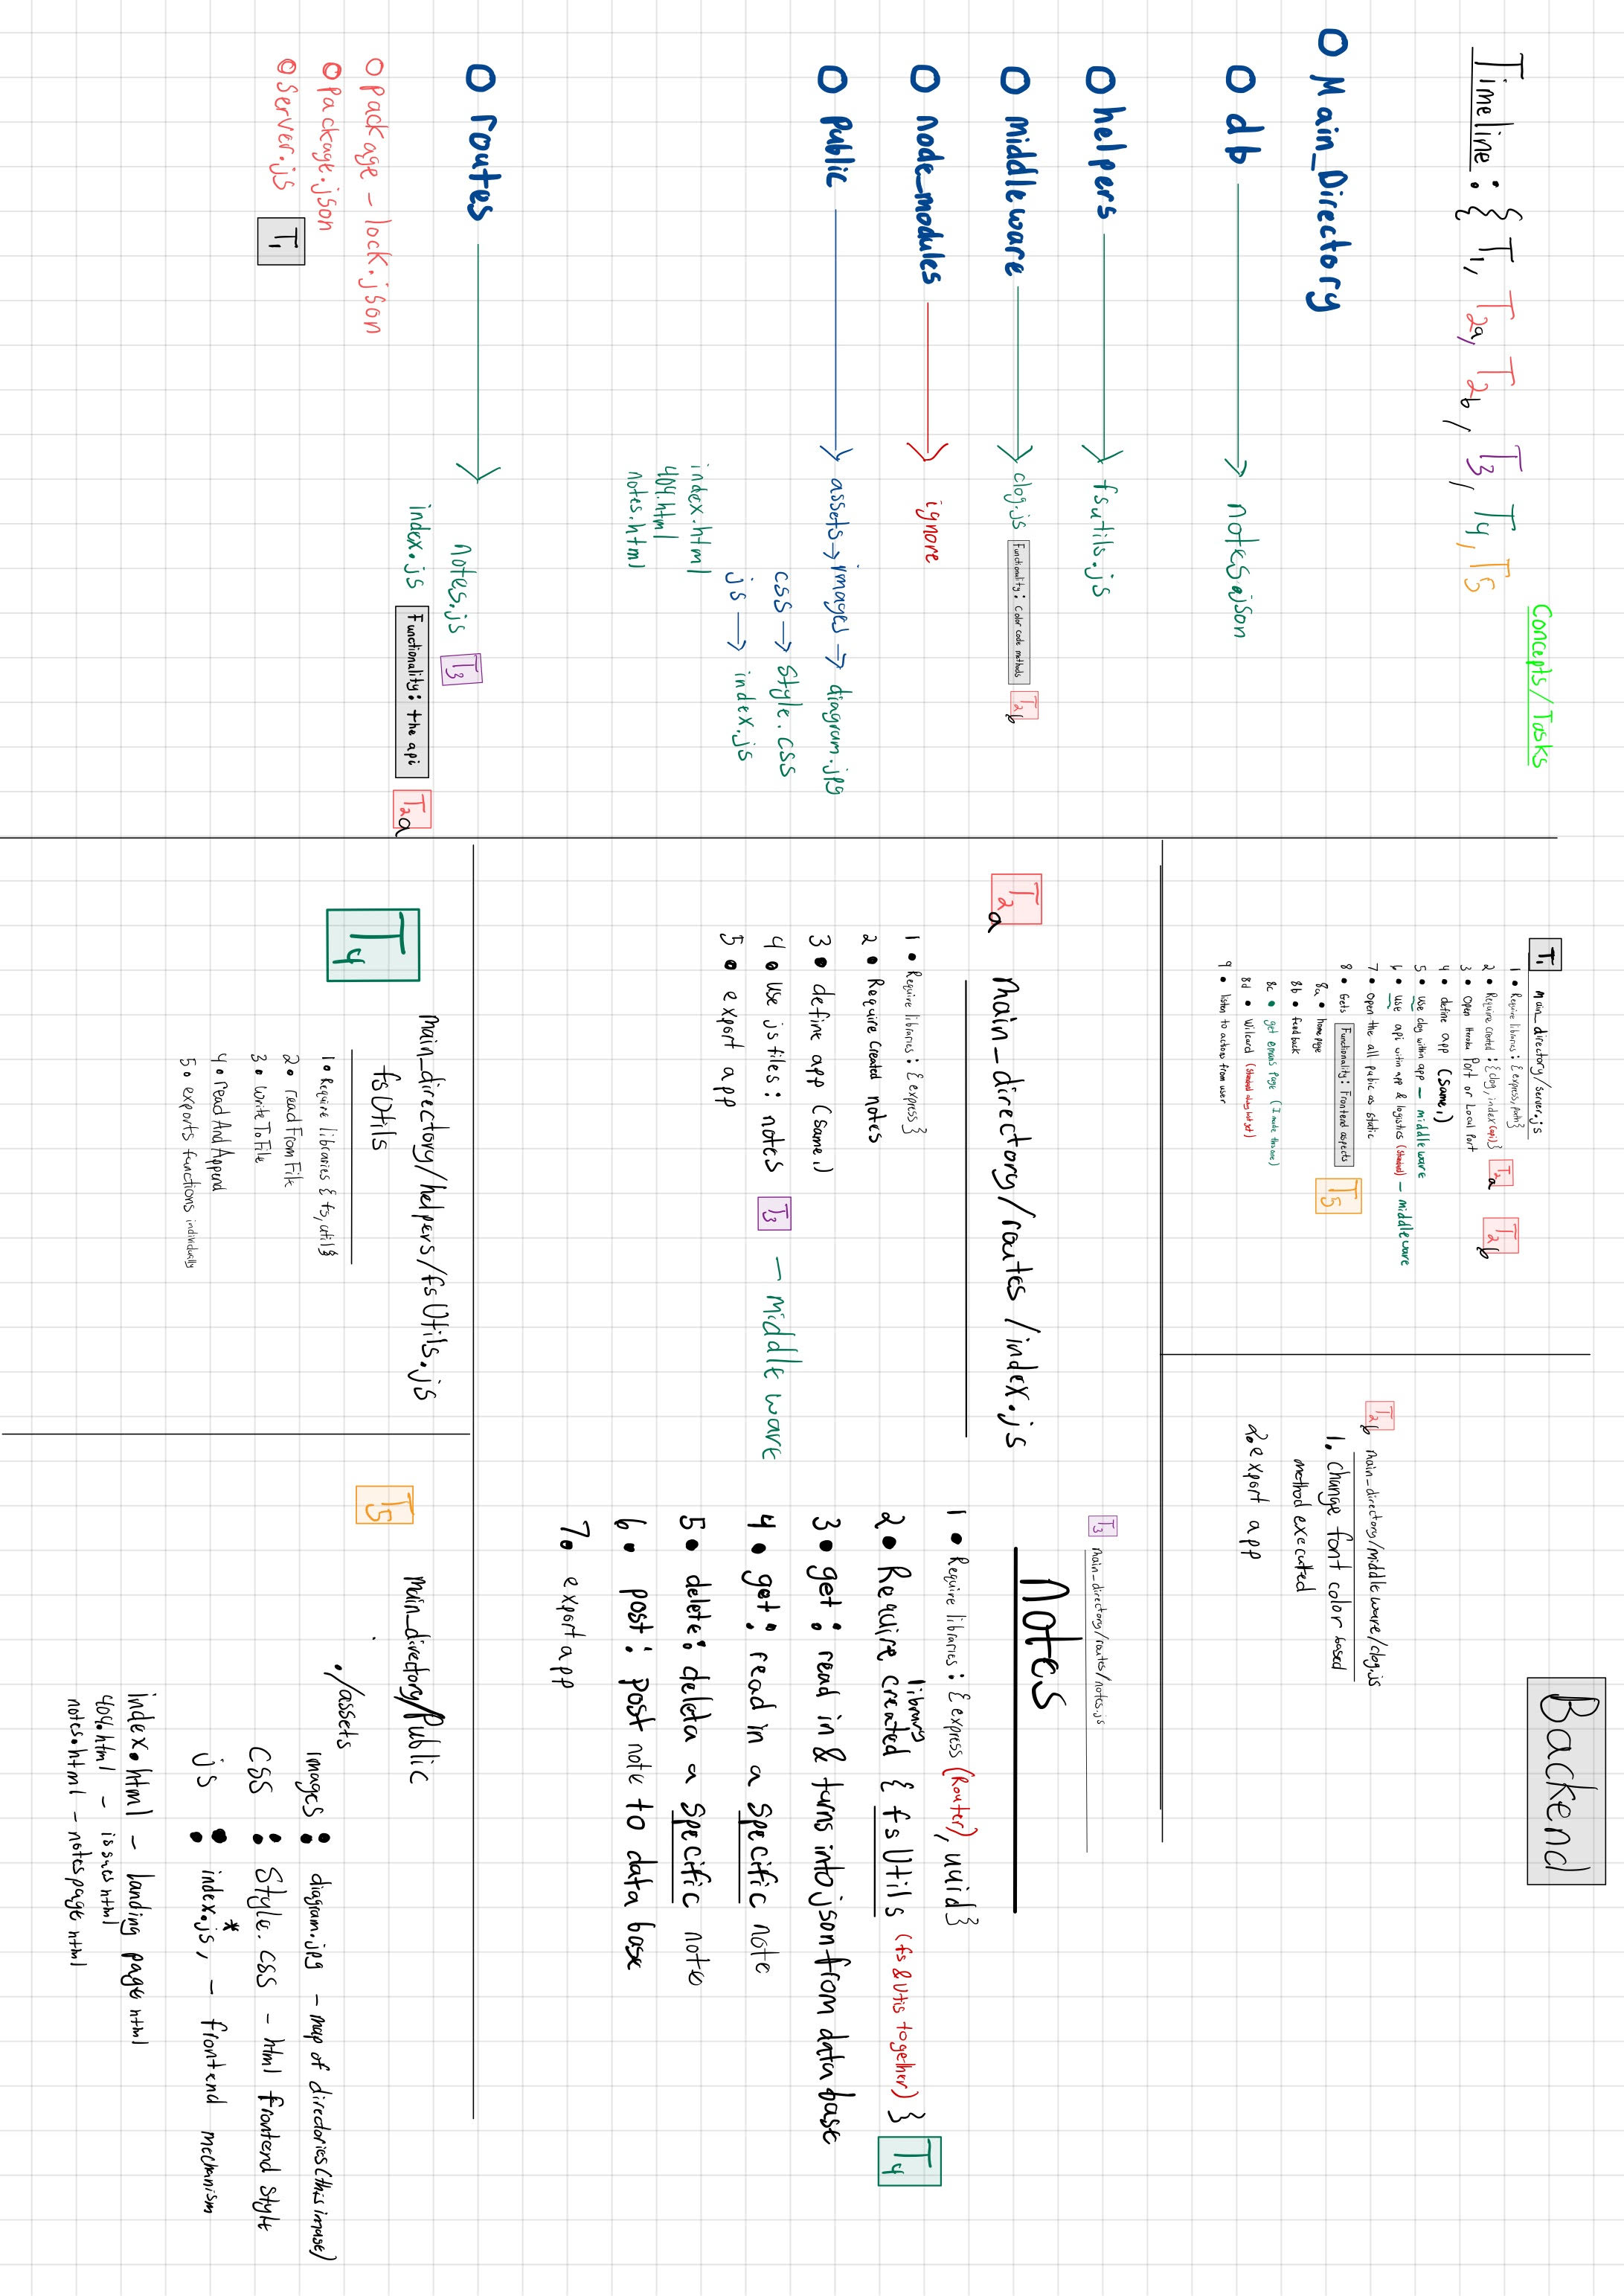 Concepts/Tasks
Timeline : { T1, T2a, T2b, T3, T4, T5
Main_Directory
db → notes.json
helpers → fsutils.js
middleware → clog.js Functionality: Color code methods T2b
node_modules → ignore
Public → assets → images → diagram.jpg
css → Style.css
js → index.js
index.html
404.html
notes.html
routes →
notes.js T3
index.js Functionality: the api T2a
Package - lock.json
Package.json
Server.js T1
Backend
T1 Main_directory/server.js
1 • Require libraries: {express, path}
2 • Require Created : {clog, index (api)} T2a T2b
3 • Open Heroku Port or Local Port
4 • define app (Same,)
5 • use clog within app — middleware
6 • use api witin app & logistics (Standard) — middleware
7 • Open the all pubic as static
8 • Gets Functionality: Frontend aspects T5
8a • home page
8b • feed back
8c • get emans Page (I made this one)
8d • Wilcard (Standard alway last get)
9 • listen to actions from user
T2b main_directory/middle ware/clog.js
1. change font color based
method executed
2. export app
T2a main_directory/routes /index.js
1 • Require libraries: {express}
2 • Require Created notes
3 • define app (Same,)
4 • use js files: notes T3 — middle ware
5 • export app
T3 main_directory/routes/notes.js
notes
1 • Require libraries: {express (Router), uuid}
library
2 • Require created { fsUtils (fs & Utis together) } T4
3 • get : read in & turns into json from data base
4 • get : read in a Specific note
5 • delete: deleta a Specific note
6 • post : post note to data base
7 • export app
T4 main_directory/helpers/fsUtils.js
fsUtils
1 • Require libraries { fs, util}
2 • read From File
3 • Write To File
4 • read And Append
5 • exports functions individually
T5 main_directory/Public
./assets
images : diagram.jpg — map of directories (this image)
css : Style.css — html frontend style
js : index.js, * — frontend mechanism
index.html — landing page html
404.html — issues html
notes.html — notes page html